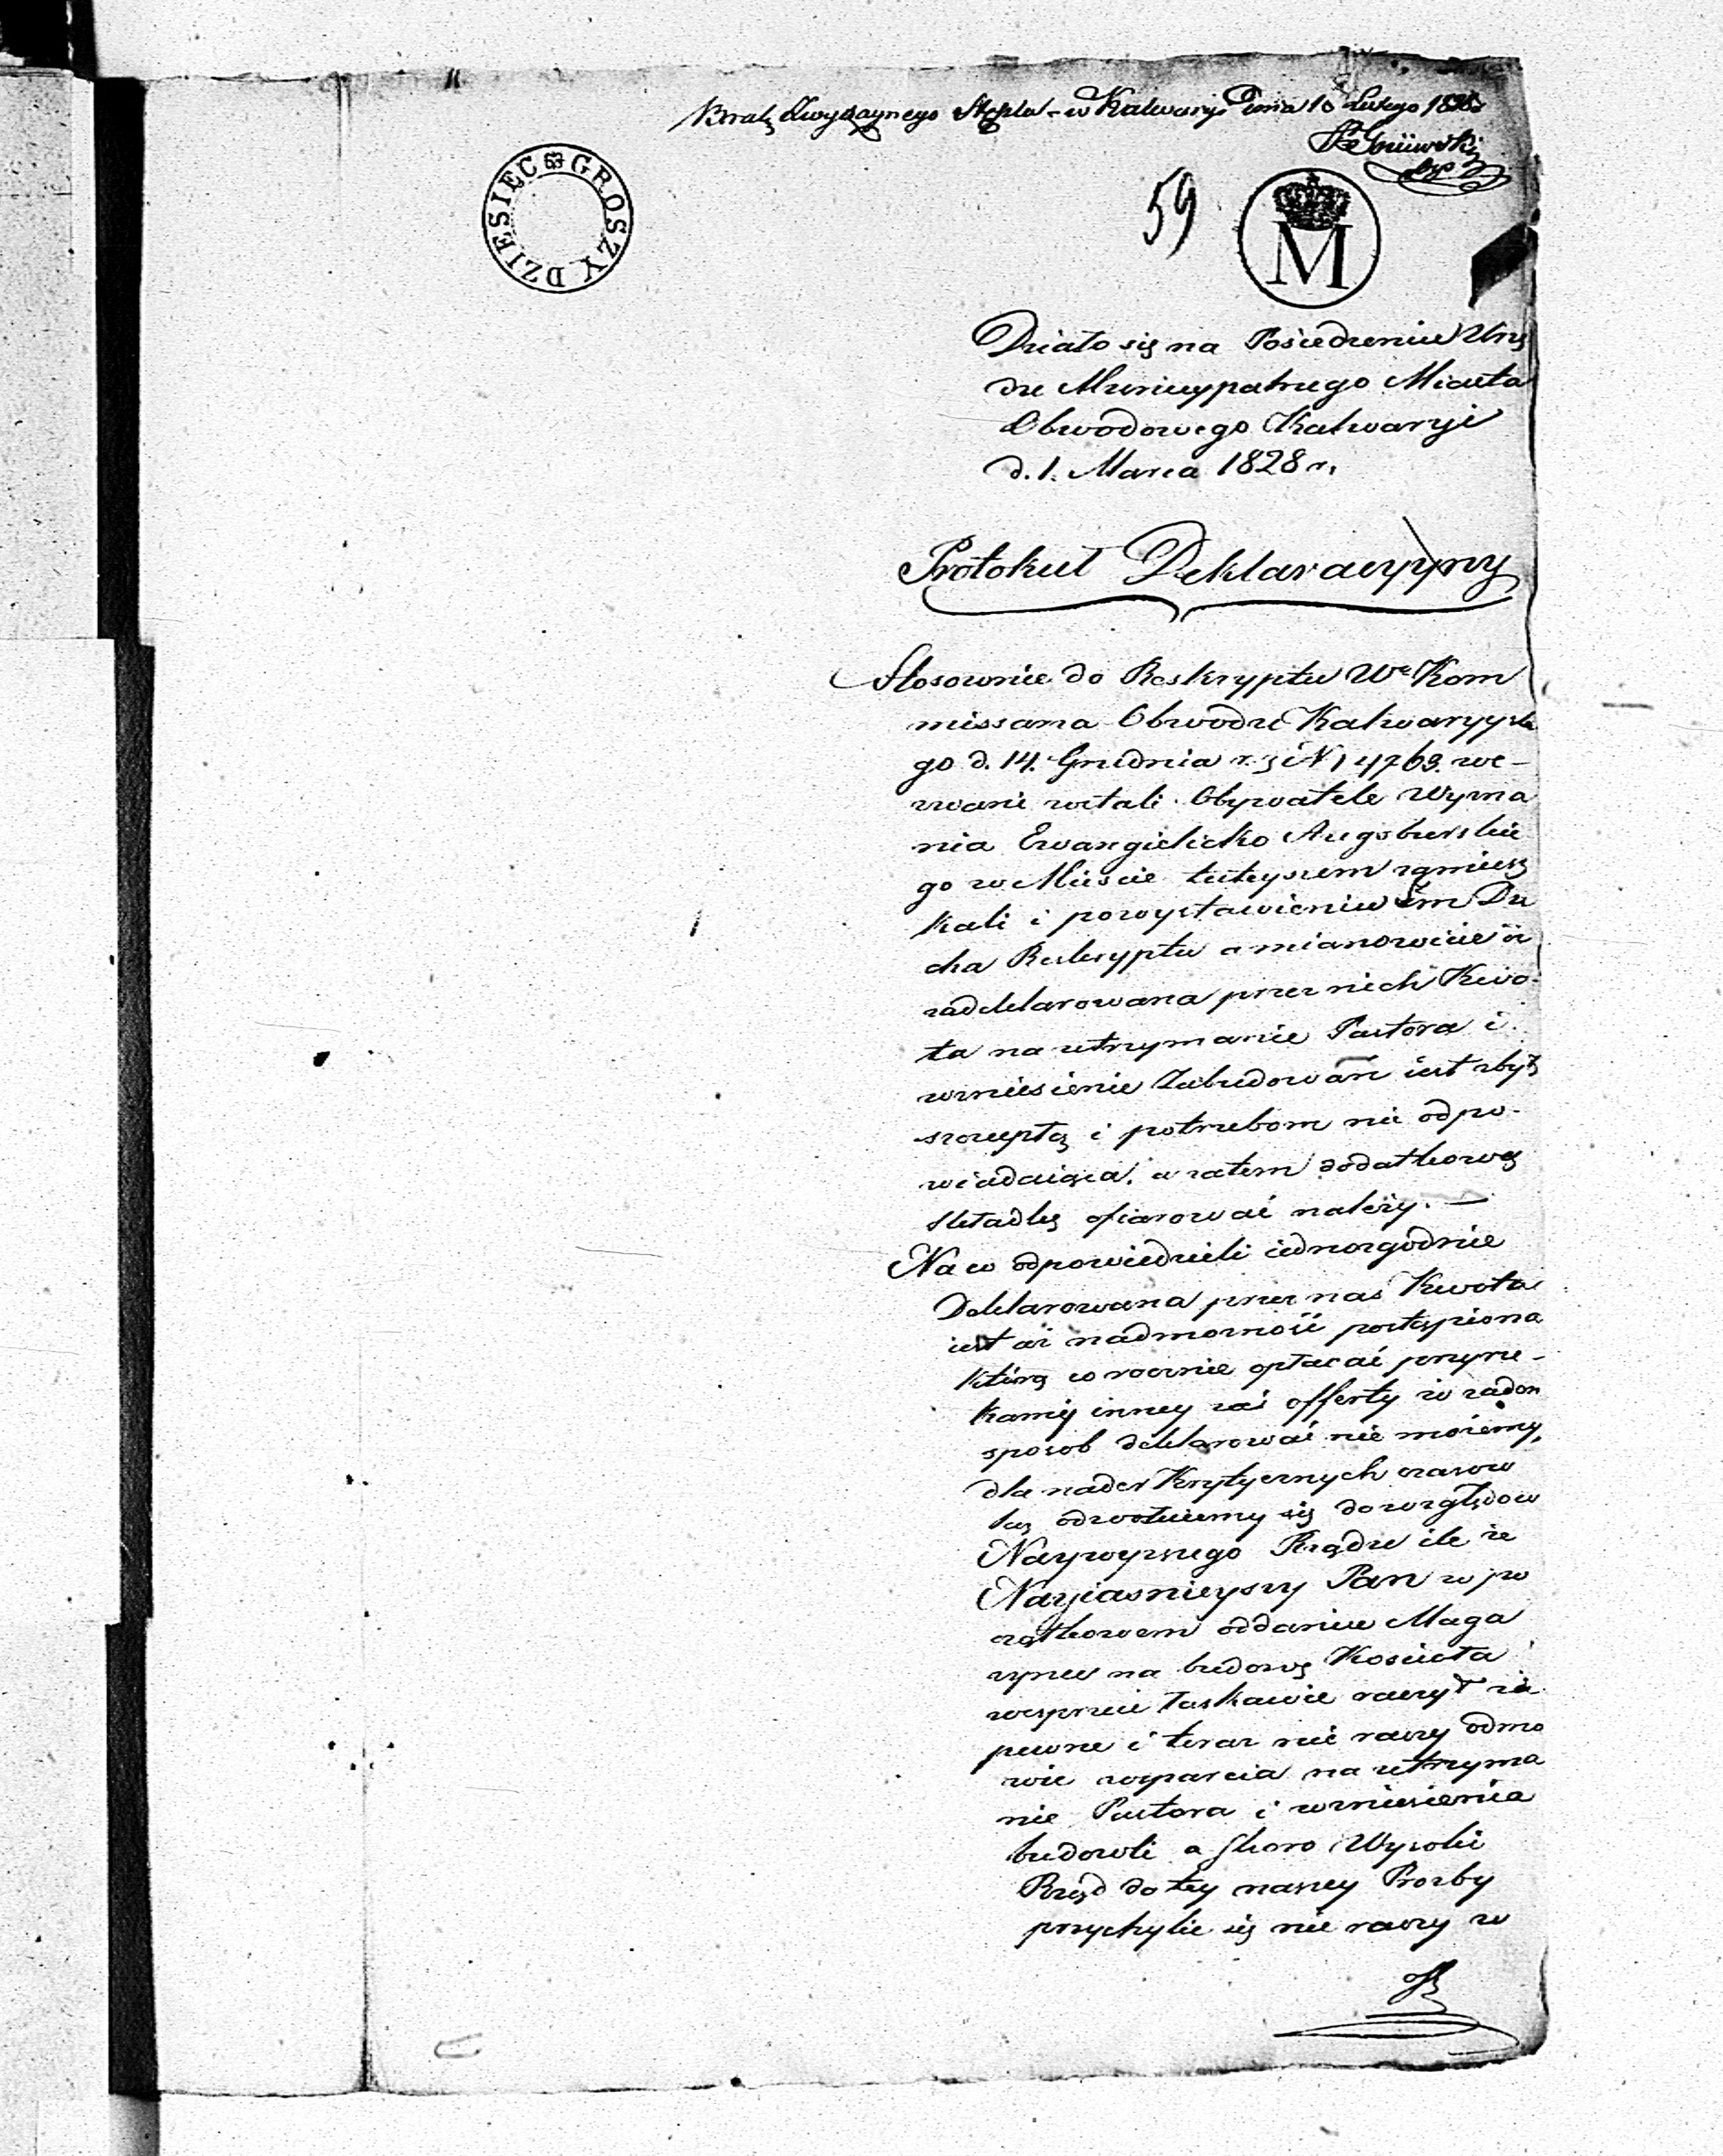 Brak Zwyczaynego Stępla - w Kalwaryi Dnia 10 Lutego
DZIESIĘC GROSZY
59
M
Działo się na Posiedzeniu Urzę
du Municypalnego Miasta
Obwodowego Kalwaryi
d. 1. Marca 1828 r.
Protokuł Deklaracyyny
Stosownie do Reskryptu We Kom
missarza Obwodu Kalwaryysk
go d. 14. Grudnia r. z. N we-
zwani zostali Obywatele Wyzna
nia Ewangielicko Augsburskie
go w Mieście tuteyszem zamiesz
kali i po wystawieniu im Du
cha Reskryptu a mianowicie iż
zadeklarowana przez nich Kwo-
ta na utrzymanie Pastora i
wzniesienie Zabudowań iest zbyt
szczupłą i potrzebom nie odpo-
wiadaiąca, a zatem dodatkową
składkę ofiarować należy. —
Na co odpowiedzieli iednozgodnie
Deklarowana przez nas Kwota
iest aż nadmożność postąpiona
którą corocznie opłacać przyrze-
kamy inney zaś offerty w żaden
sposób deklarować nie możemy,
dla nader Krytycznych czasów
lecz odwołuiemy się do względów
Naywyższego Rządu ile że
Nayiaśnieyszy Pan w po
czątkowem oddaniu Maga
zynu na budowę Kościoła
wesprzeć łaskawie raczył za
pewne i teraz nie raczy odmó
wić wsparcia na utrzyma
nie Pastora i wzniesienia
budowli a skoro Wysoki
Rząd do tey naszey Prozby
przychylić się nie raczy w